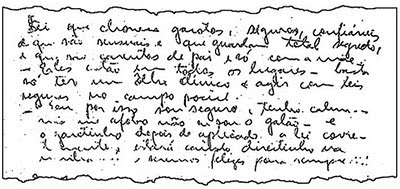 Sei que garotos, seguros, confiáveis
e que são sensuais e que guardam total segredo,
e que são carentes de pai e só com a mãe -
- Eles estão em todos os lugares - basta
só ter um olho clínico e agir com leis
seguras no campo social.
- Eu por isso sou seguro. Tenho calma
não me afobo não sou o galã - e
o garotinho depois de aplicado a lei corre-
tamente, estará caindo direitinho na
minha..., seremos felizes para sempre...!